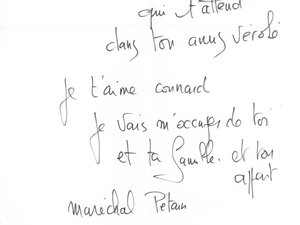 qui t'attend
dans ton anus vérolé
je t'aime connard
je vais m'occuper de toi
et ta famille. et ton
appart
maréchal Petain